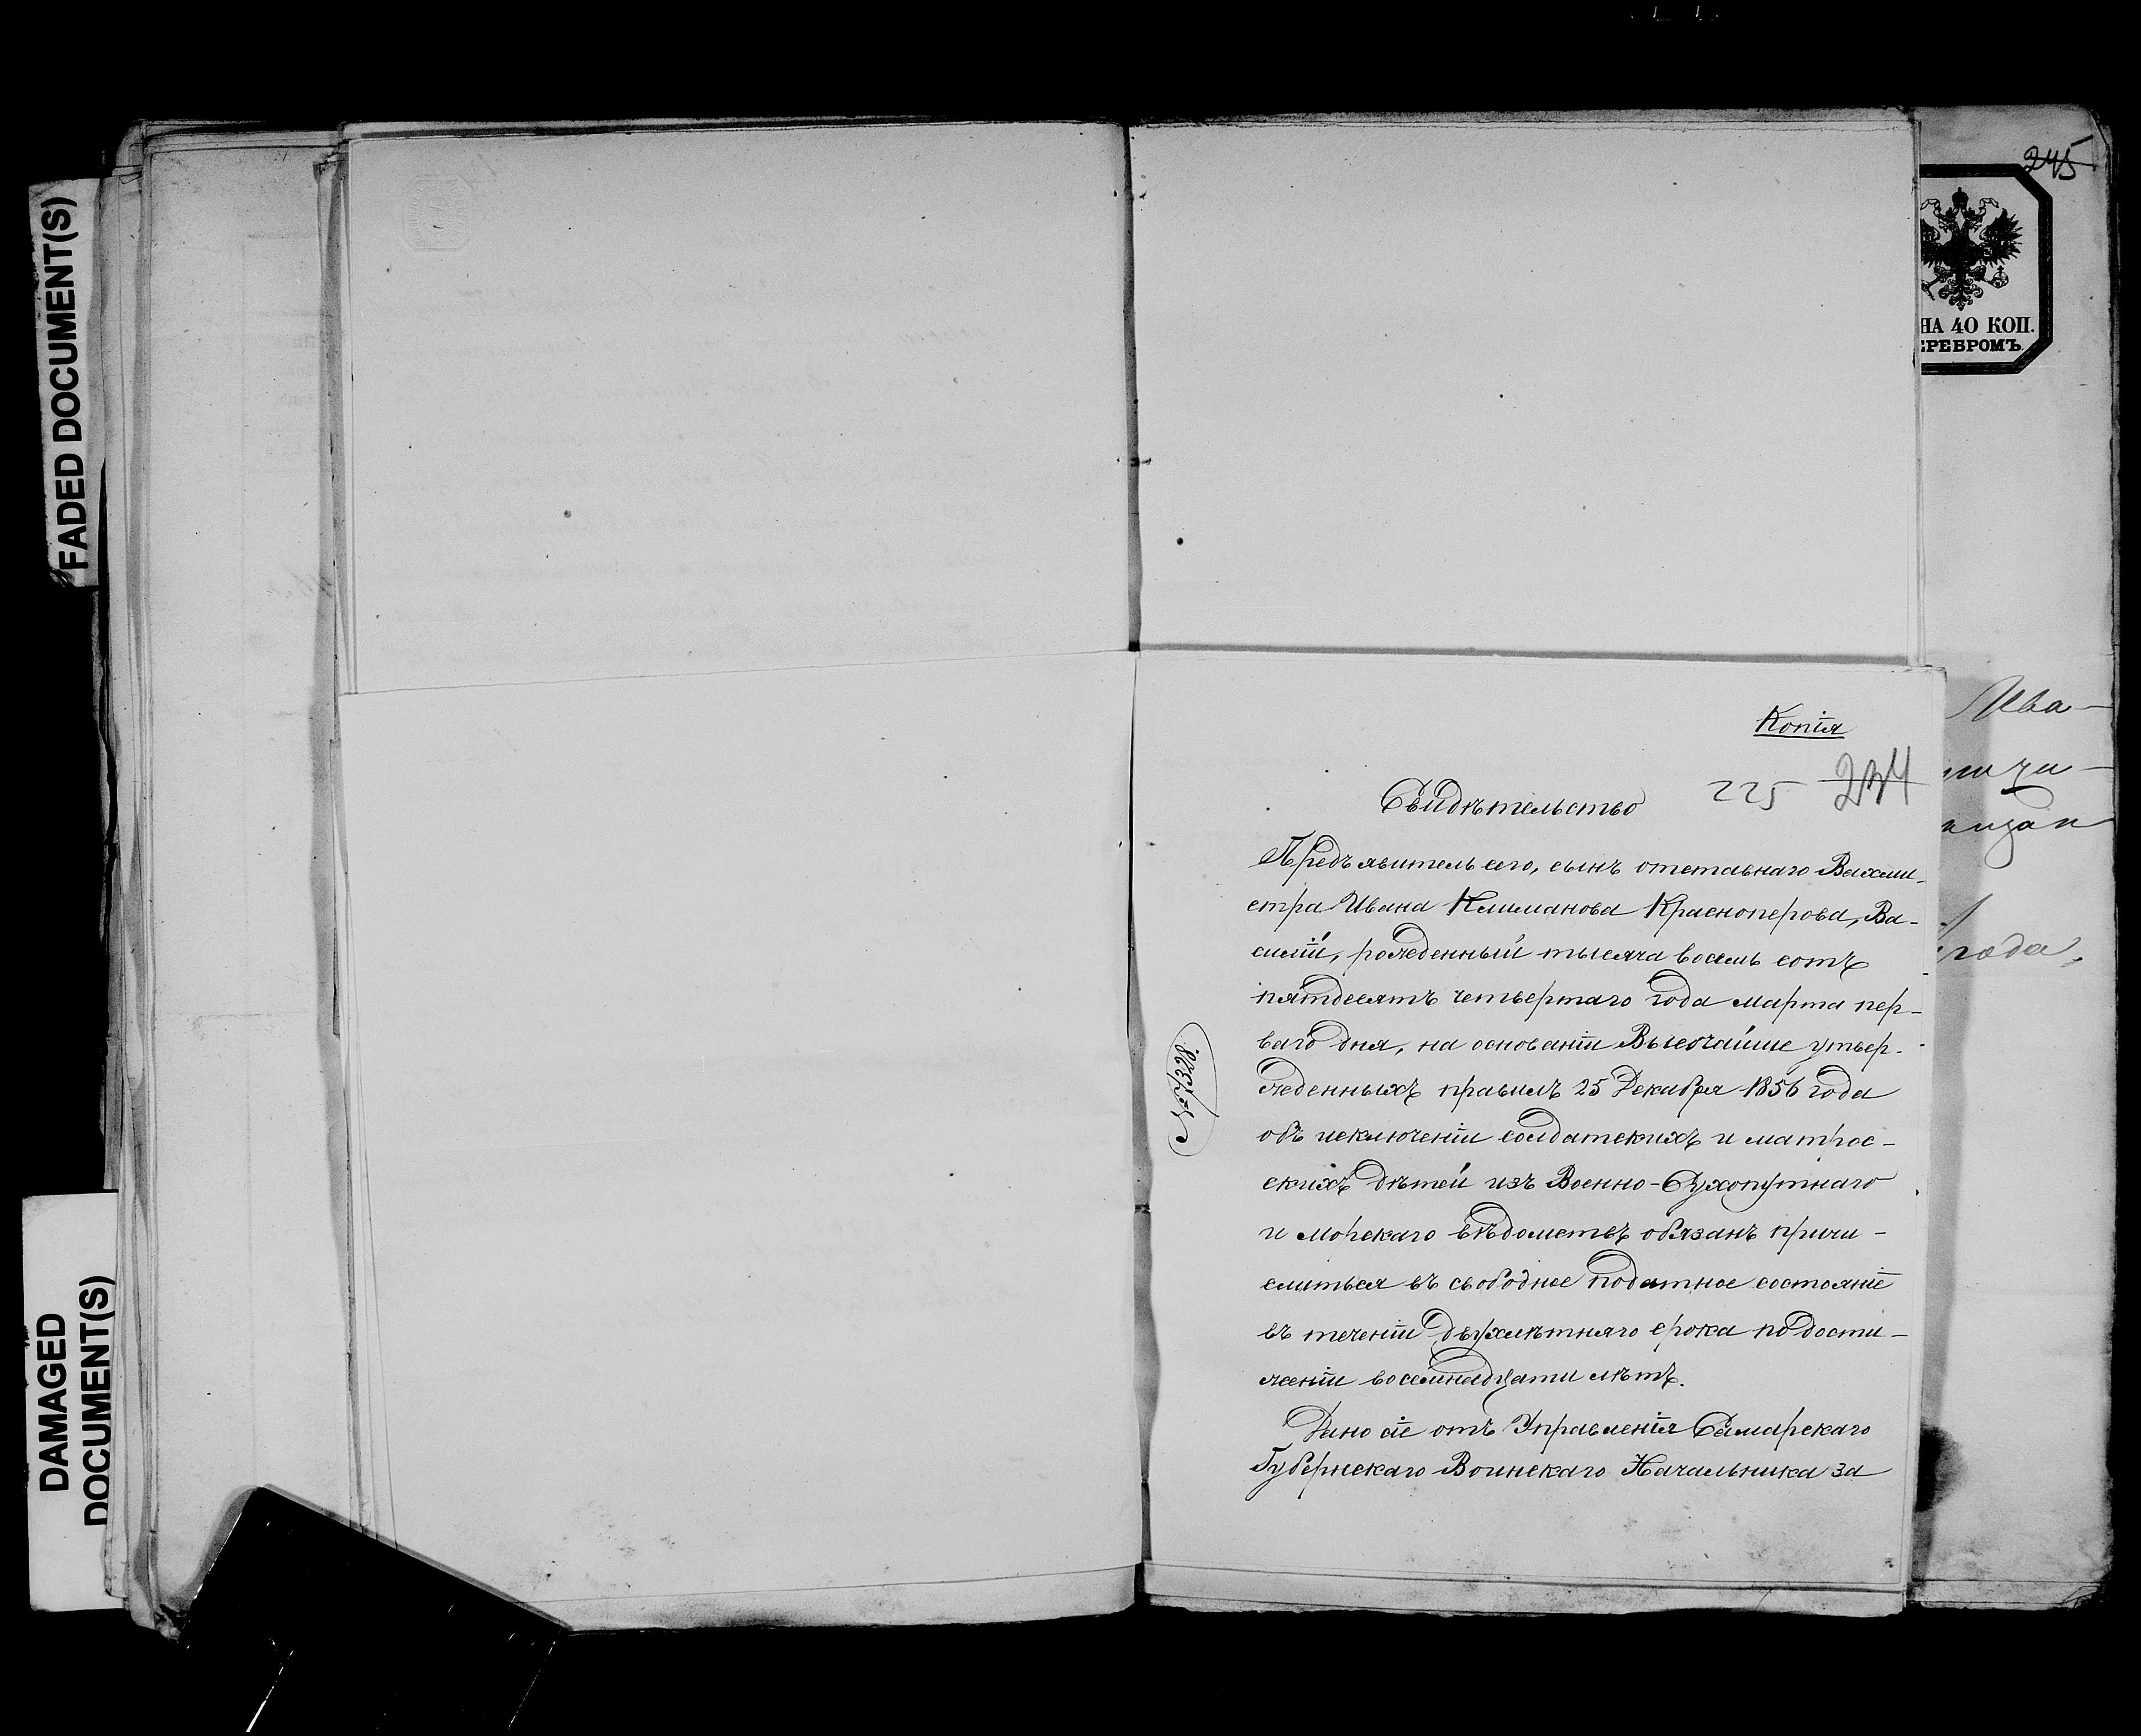 FADED DOCUMENT(S)
DAMAGED
DOCUMENT(S)
245
НА 40 КОП.
ЕРЕБРОМЪ.
Ива-
года,
Копія
225 234
Свидѣтельство
Предъявитель сего, сынъ отставнаго Вахми-
стра Ивана Климанова Красноперова, Ва-
силій, рожденный тысяча восемь сотъ
пятдесятъ четвертаго года марта пер-
ваго дня, на основаніи Высочайше утвер-
жденныхъ правилъ 25 Декабря 1856 года
объ исключеніи солдатскихъ и матрос-
скихъ дѣтей изъ Военно-Сухопутнаго
и морскаго вѣдомствъ обязанъ причи-
слиться въ свободное податное состояніе
въ теченіи двухлѣтняго срока по дости-
женіи восемнадцати лѣтъ.
Дано сіе отъ Управленія Самарскаго
Губернскаго Воинскаго Начальника за